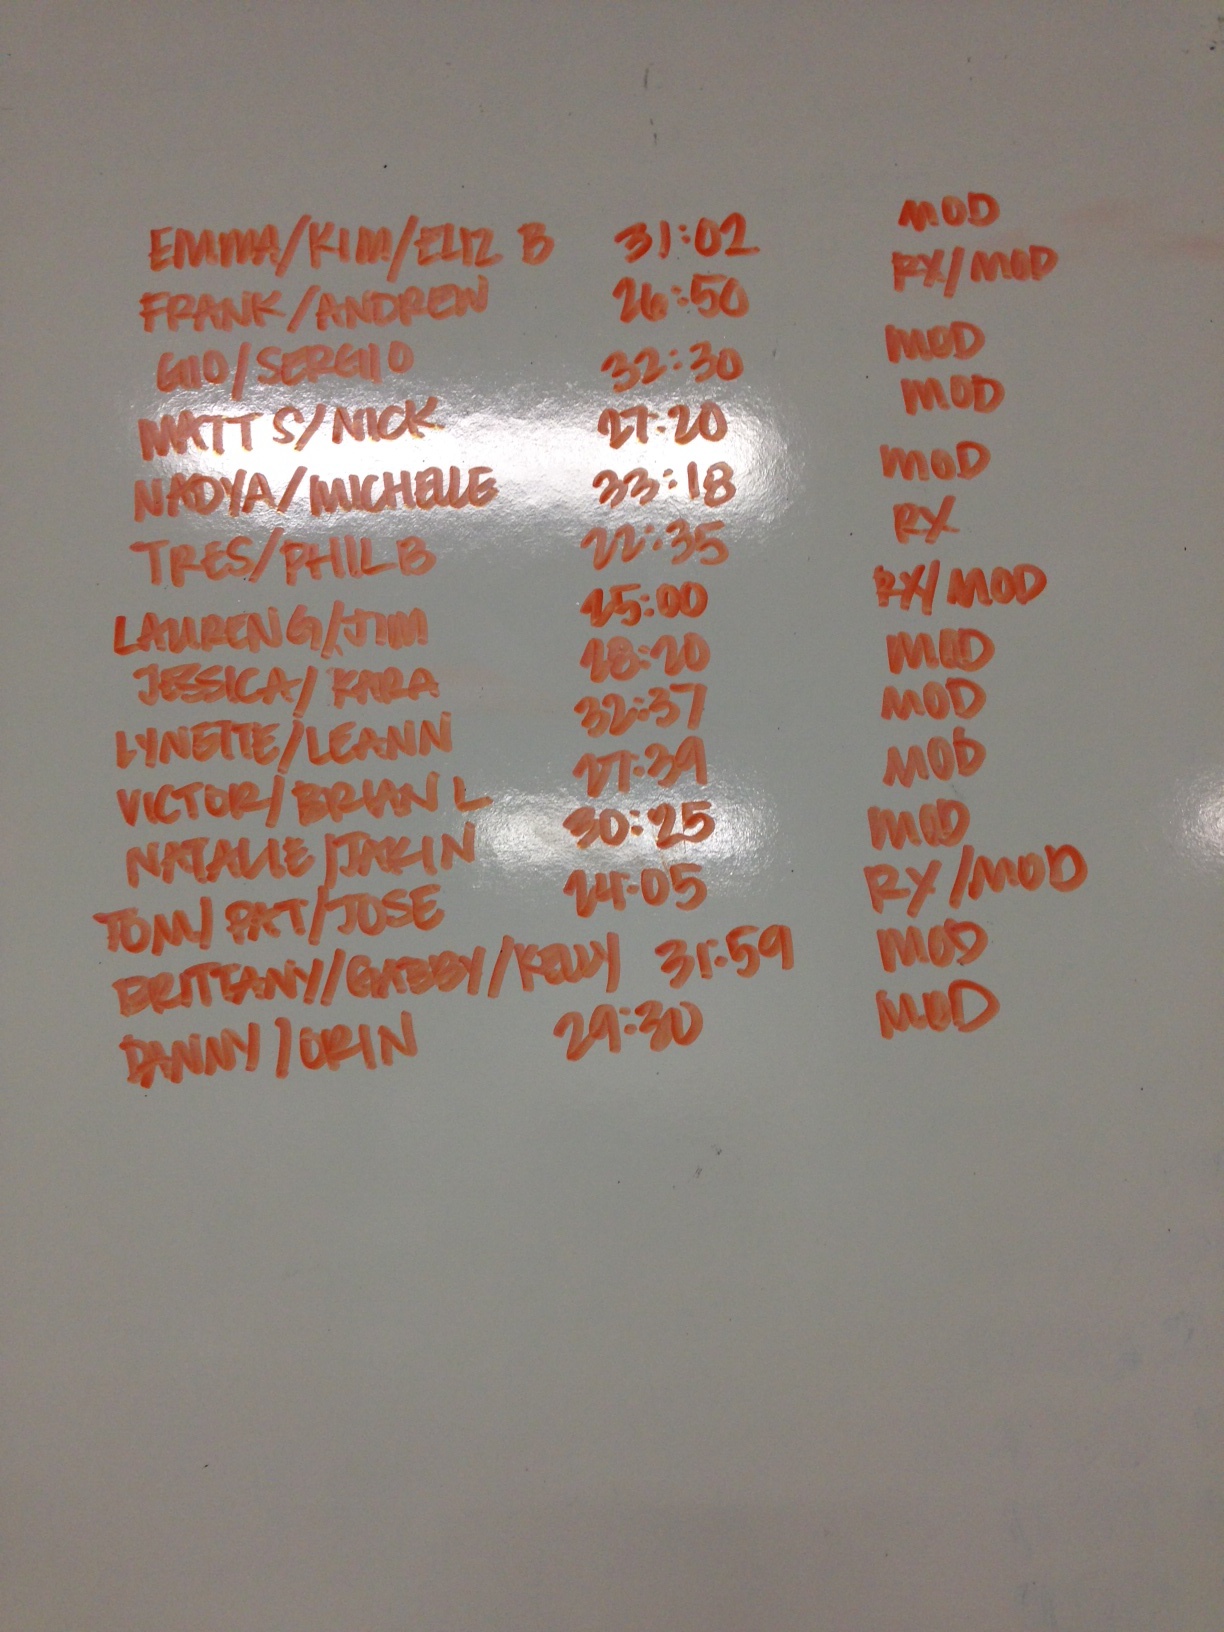 EMMA/KIM/ELIZ B 31:02 MOD
FRANK/ANDREW 26:50 RX/MOD
GIO/SERGIO 32:30 MOD
MATT S/NICK 27:20 MOD
NADYA/MICHELLE 33:18 MOD
TRES/PHIL B 22:35 RX
LAUREN G/JIM 25:00 RX/MOD
JESSICA/KARA 28:20 MOD
LYNETTE/LEANN 32:37 MOD
VICTOR/BRIAN L 27:39 MOD
NATALIE/JAKIN 30:25 MOD
TOM/PAT/JOSE 24:05 RX/MOD
BRITTANY/GABBY/KELLY 31:59 MOD
DANNY/ORIN 29:30 MOD